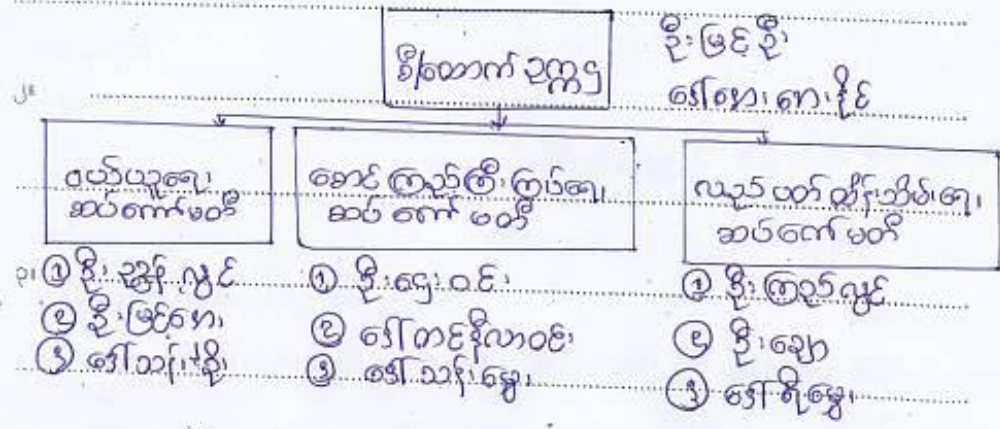 ဦးမြင့်ဦး
စီ/ထောက် ဥက္ကဌ
ဒေါ်အေးအေးခိုင်
၂။
ဝယ်ယူရေး
ဆပ်ကော်မတီ
စောင့်ကြည့်ကြီးကြပ်ရေး
ဆပ်ကော်မတီ
လည်ပတ်ထိန်းသိမ်းရေး
ဆပ်ကော်မတီ
၃။ ① ဦးညွန့်လွင်
② ဦးမြင့်အေး
③ ဒေါ်သန်း
① ဦးဌေးဝင်း
② ဒေါ်တင်နီလာဝင်း
③ ဒေါ်သန်းမွှေး
① ဦးကြည်လွင်
② ဦးချော
③ ဒေါ်ရီမွှေး